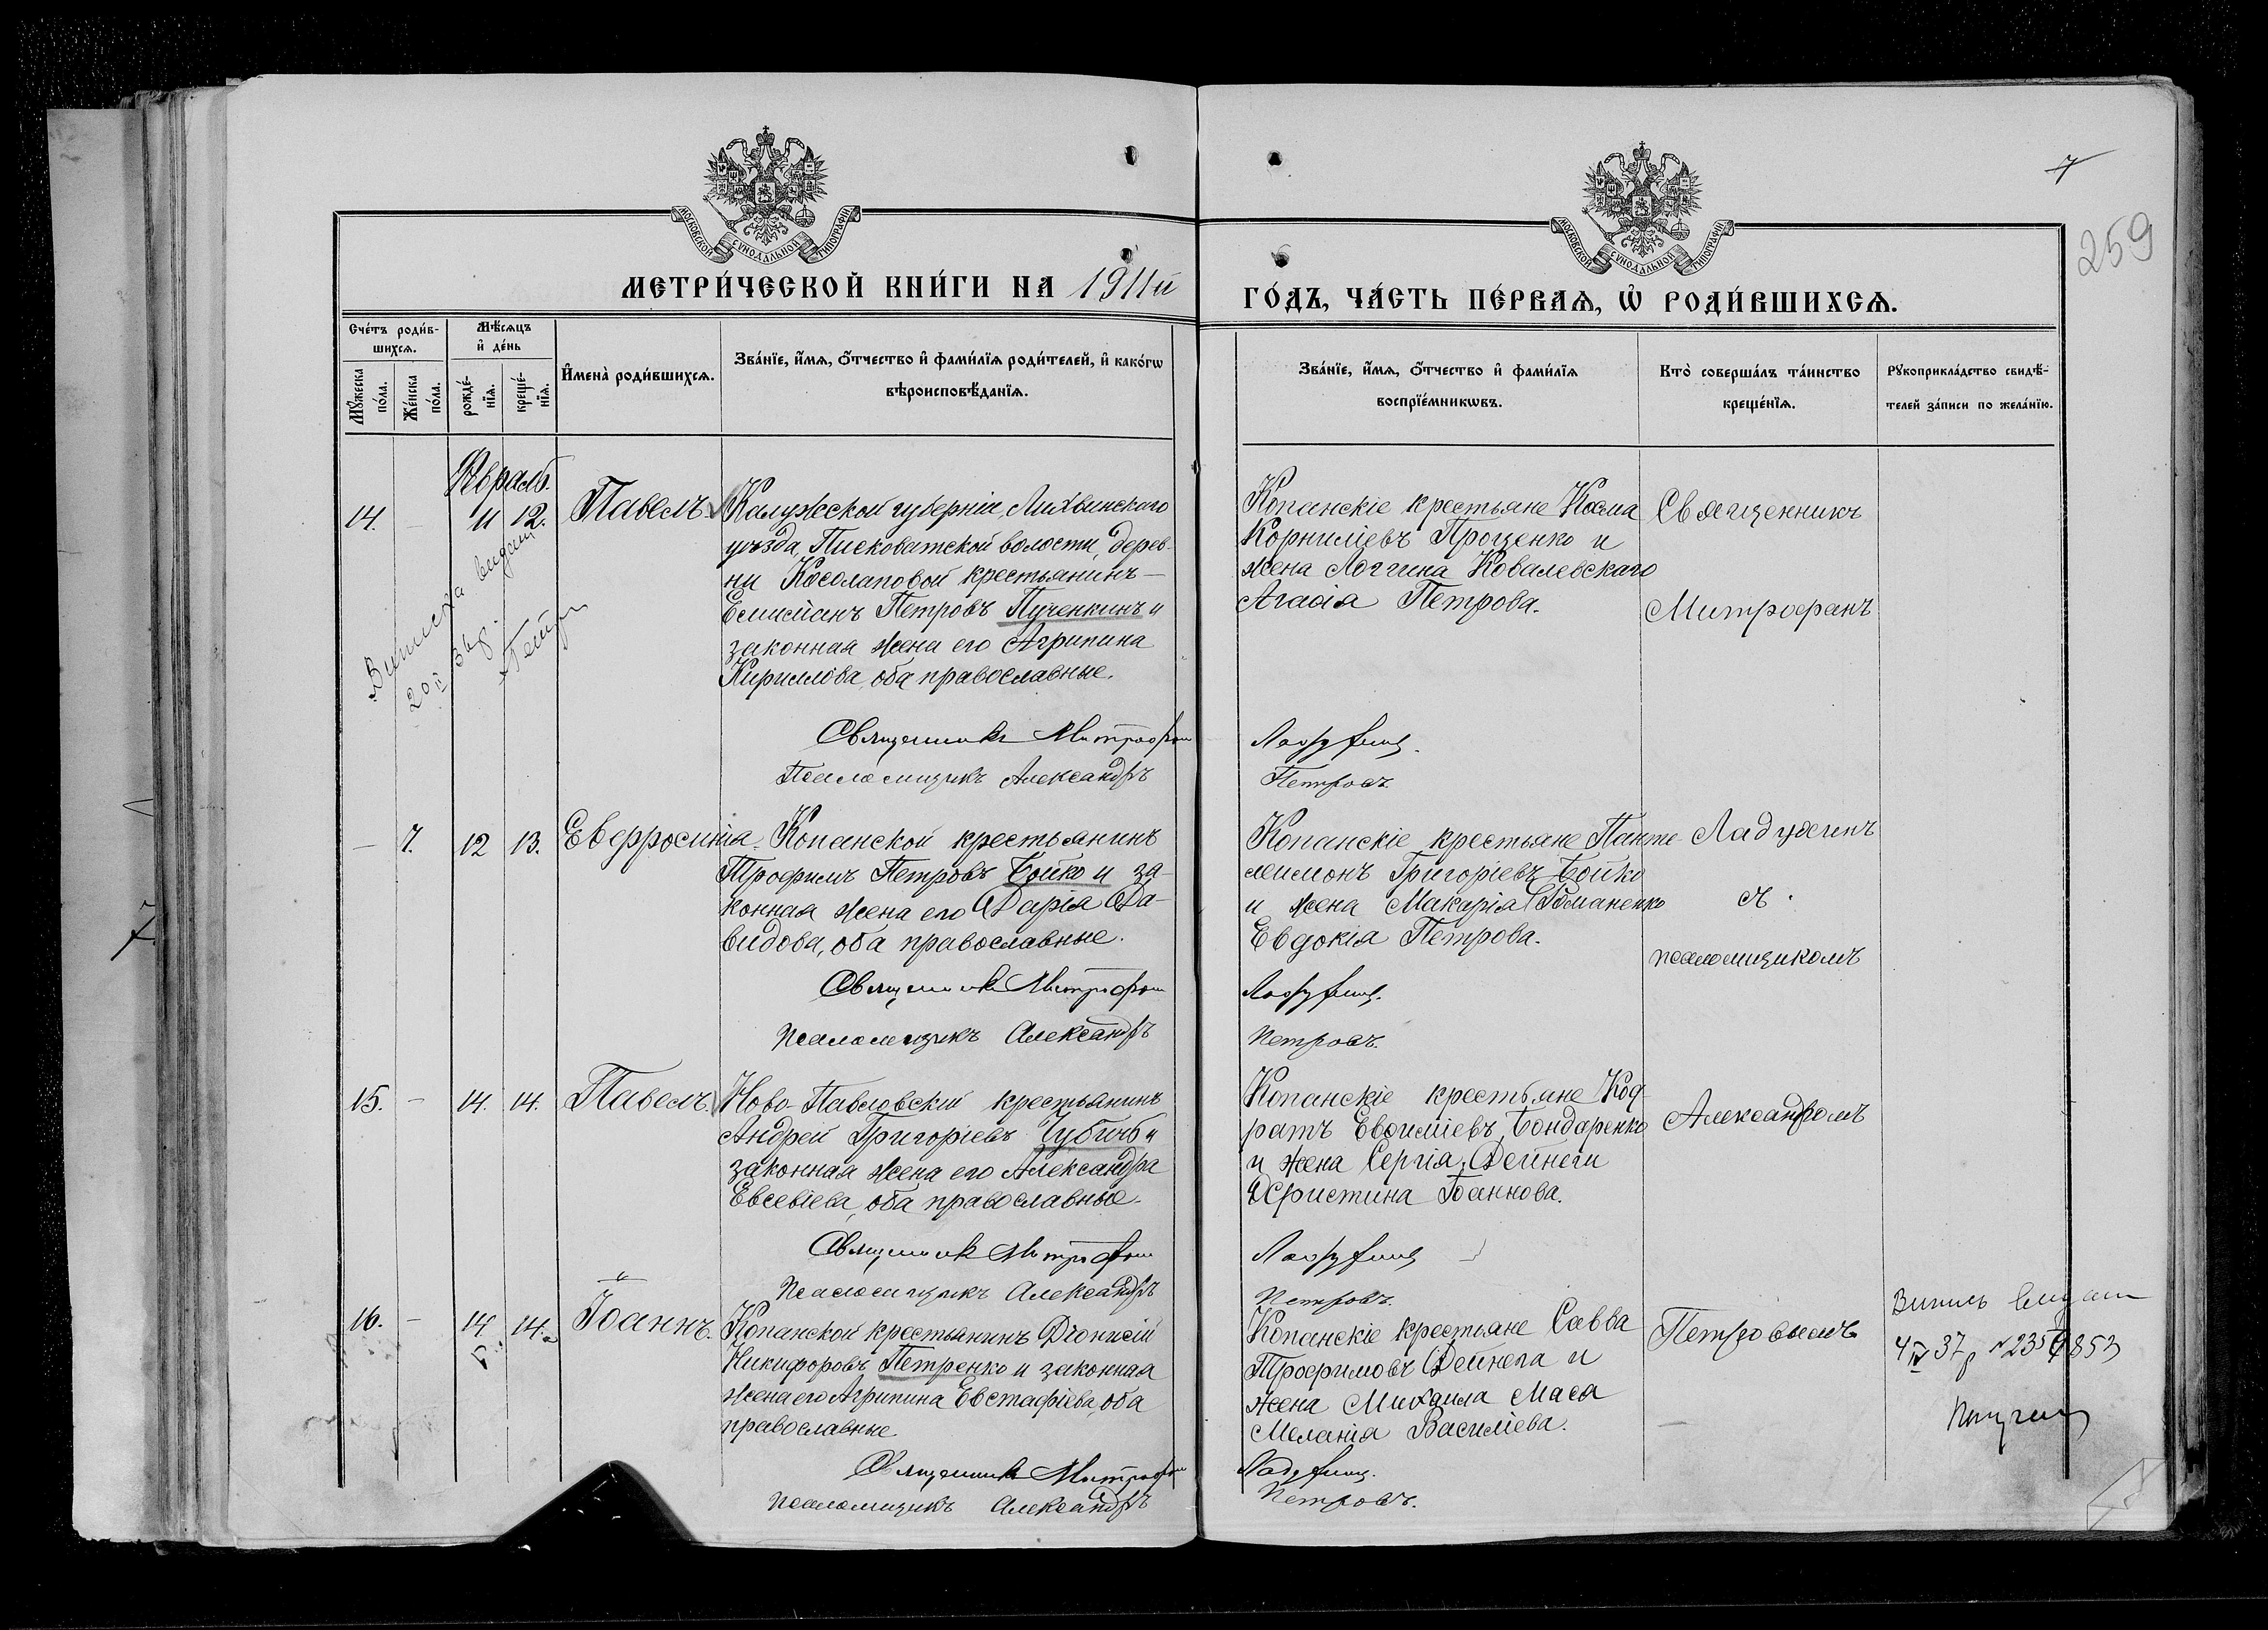 МОСКОВСКОЙ СУНОДАЛЬНОЙ ТИПОГРАФІИ
МОСКОВСКОЙ СУНОДАЛЬНОЙ ТИПОГРАФІИ
7
259
МЕТРИ́ЧЕСКОЙ КНИ́ГИ НА 1911й
ГО́ДЪ, ЧА́СТЬ ПЕ́РВАѦ, Ѡ҆ РОДИ́ВШИХСѦ.
Сче́тъ роди́в-
шихсѧ.
Мѣ́сѧцъ
и҆ де́нь
Мꙋ́жеска
по́ла.
Же́нска
по́ла.
рожде́-
нїѧ.
креще́-
нїѧ.
И҆мена̀ роди́вшихсѧ.
Зва́нїе, и҆́мѧ, ѻ҆́тчество и҆ фами́лїѧ роди́телей, и҆ како́гѡ
вѣроисповѣ́данїѧ.
Зва́нїе, и҆́мѧ, ѻ҆́тчество и҆ фами́лїѧ
воспрїе́мникѡвъ.
Кто̀ соверша́лъ та́инство
креще́нїѧ.
Рꙋкоприкла́дство свидѣ́-
телей за́писи по жела́нїю.
Февраль.
14. – 11 12. Павелъ.
Калужской губерніи, Лихвинскаго
уѣзда, Писковатской волости, дерев-
ни Косолаповой крестьянинъ –
Емиліанъ Петровъ Пученкинъ и
законная жена его Агрипина
Кириллова, оба православные.
Священникъ Митрофан
Псаломщикъ Александръ
Копанскіе крестьяне Косма
Корниліевъ Проценко и
жена Логгина Ковалевскаго
Агаѳія Петрова.
Ладухинъ.
Петровъ.
Священникъ
Митрофанъ
– 7. 12 13. Евфросинія.
Копанской крестьянинъ
Трофимъ Петровъ Бойко и за-
конная жена его Дарія Да-
видова, оба православные.
Священникъ Митрофан
Псаломщикъ Александръ
Копанскіе крестьяне Панте-
леимонъ Григоріевъ Бойко
и жена Макарія Романенко
Евдокія Петрова.
Ладухинъ.
Петровъ.
Ладухинъ
съ
псаломщикомъ
7
15. – 14. 14. Павелъ.
Ново-Павловскій крестьянинъ
Андрей Григоріевъ Чубичъ и
законная жена его Александра
Евсевіева, оба православные.
Священник Митрофан
Псаломщикъ Александръ
Копанскіе крестьяне Код-
ратъ Евѳиміевъ Бондаренко
и жена Сергія Дейнеги
Христина Іоаннова.
Ладухинъ
Петровъ.
Александромъ
16. – 14 14. Іоаннъ.
Копанской крестьянинъ Діонисій
Никифоровъ Петренко и законная
жена его Агрипина Евстафіева, оба
православные.
Священникъ Митрофан
Псаломщикъ Александръ
Копанскіе крестьяне Савва
Трофимовъ Дейнега и
жена Михаила Маса
Меланія Василіева.
Ладухинъ.
Петровъ.
Петровымъ